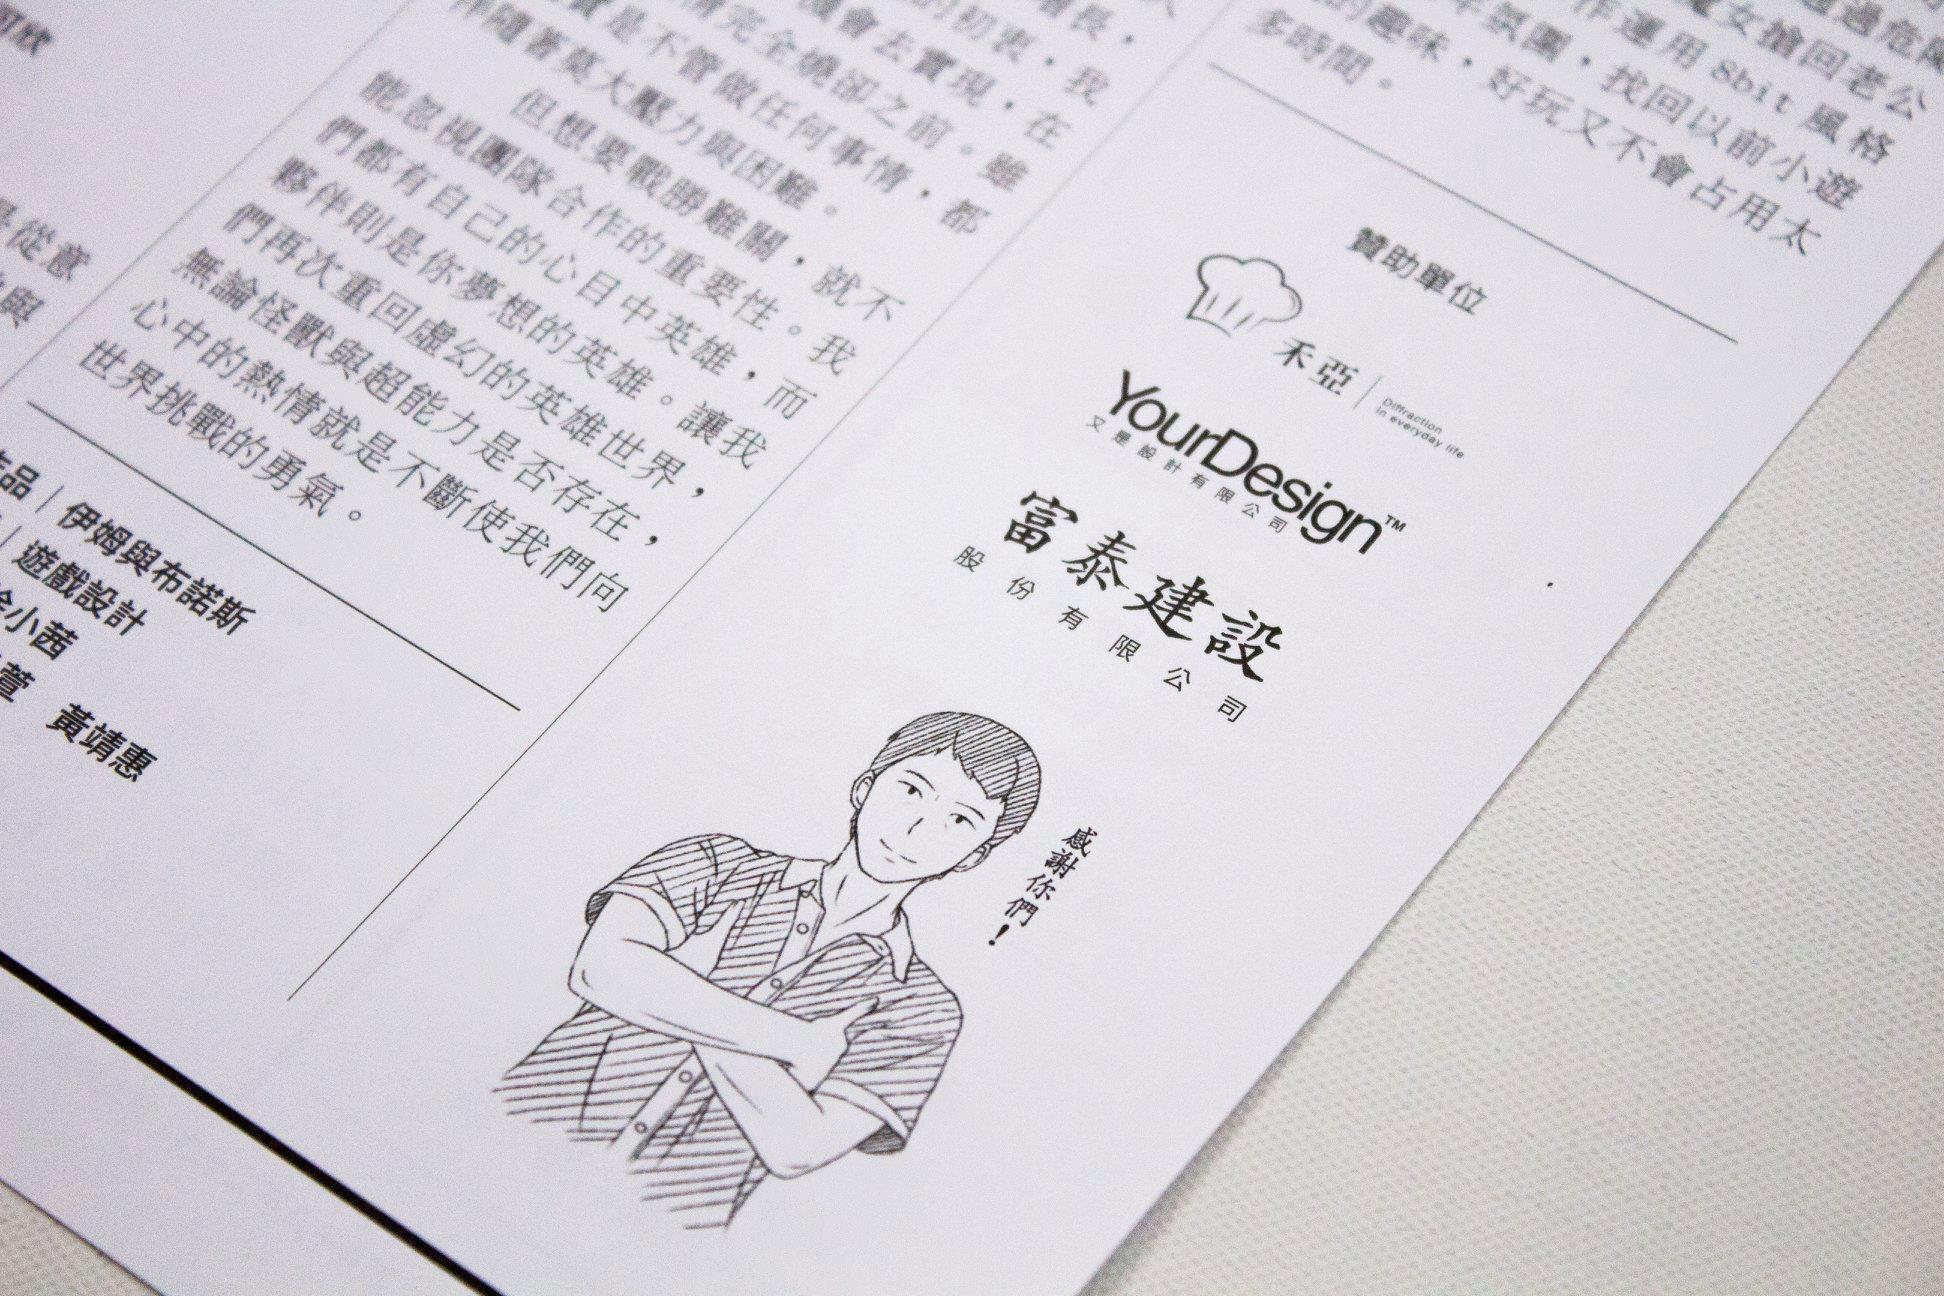 但想要戰勝難關，就不
能忽視團隊合作的重要性。我
們都有自己的心目中英雄，而
夥伴則是你夢想的英雄。讓我
們再次重回虛幻的英雄世界，
無論怪獸與超能力是否存在，
心中的熱情就是不斷使我們向
世界挑戰的勇氣。
伊姆與布諾斯
遊戲設計
小茜
萱　黃靖惠
是從意
與
的初衷，我
機會去實現，在
情完全燒卻之前。雖
實是不管做任何事情，都
伴隨著莫大壓力與困難。
魔女搶回老公
作運用 8bit 風格
年氛圍，找回以前小遊
的趣味，好玩又不會占用太
多時間。
贊助單位
禾亞
Diffraction
in everyday life
YourDesign™
又是設計有限公司
富泰建設
股份有限公司
感謝你們！